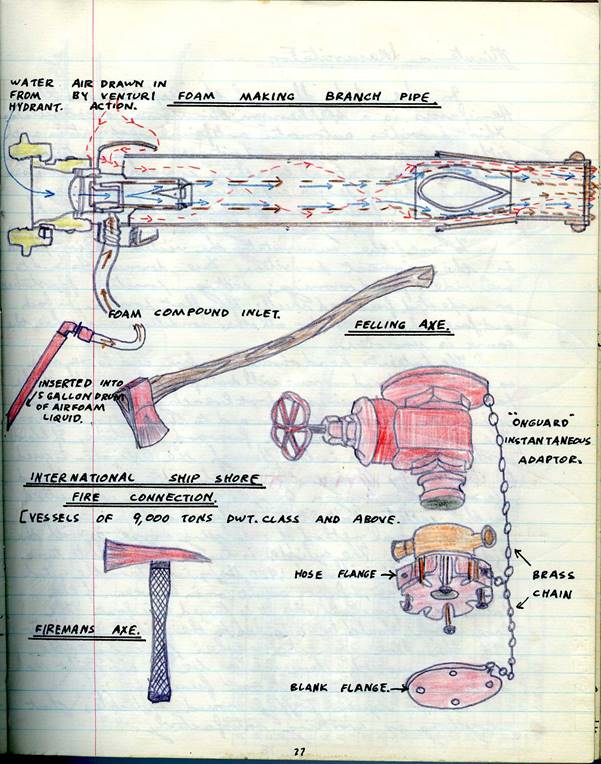 WATER FROM HYDRANT.
AIR DRAWN IN BY VENTURI ACTION.
FOAM MAKING BRANCH PIPE.
FOAM COMPOUND INLET.
FELLING AXE.
INSERTED INTO
5 GALLON DRUM
OF AIRFOAM
LIQUID.
"ONGUARD"
INSTANTANEOUS
ADAPTOR.
INTERNATIONAL SHIP SHORE
FIRE CONNECTION.
[VESSELS OF 9,000 TONS DWT. CLASS AND ABOVE.
HOSE FLANGE
BRASS
CHAIN
FIREMANS AXE.
BLANK FLANGE.